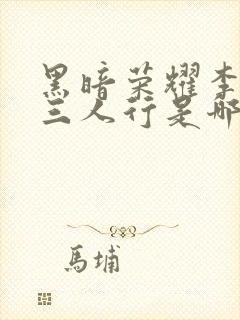 黑暗荣耀李
三人行是哪
馬埔